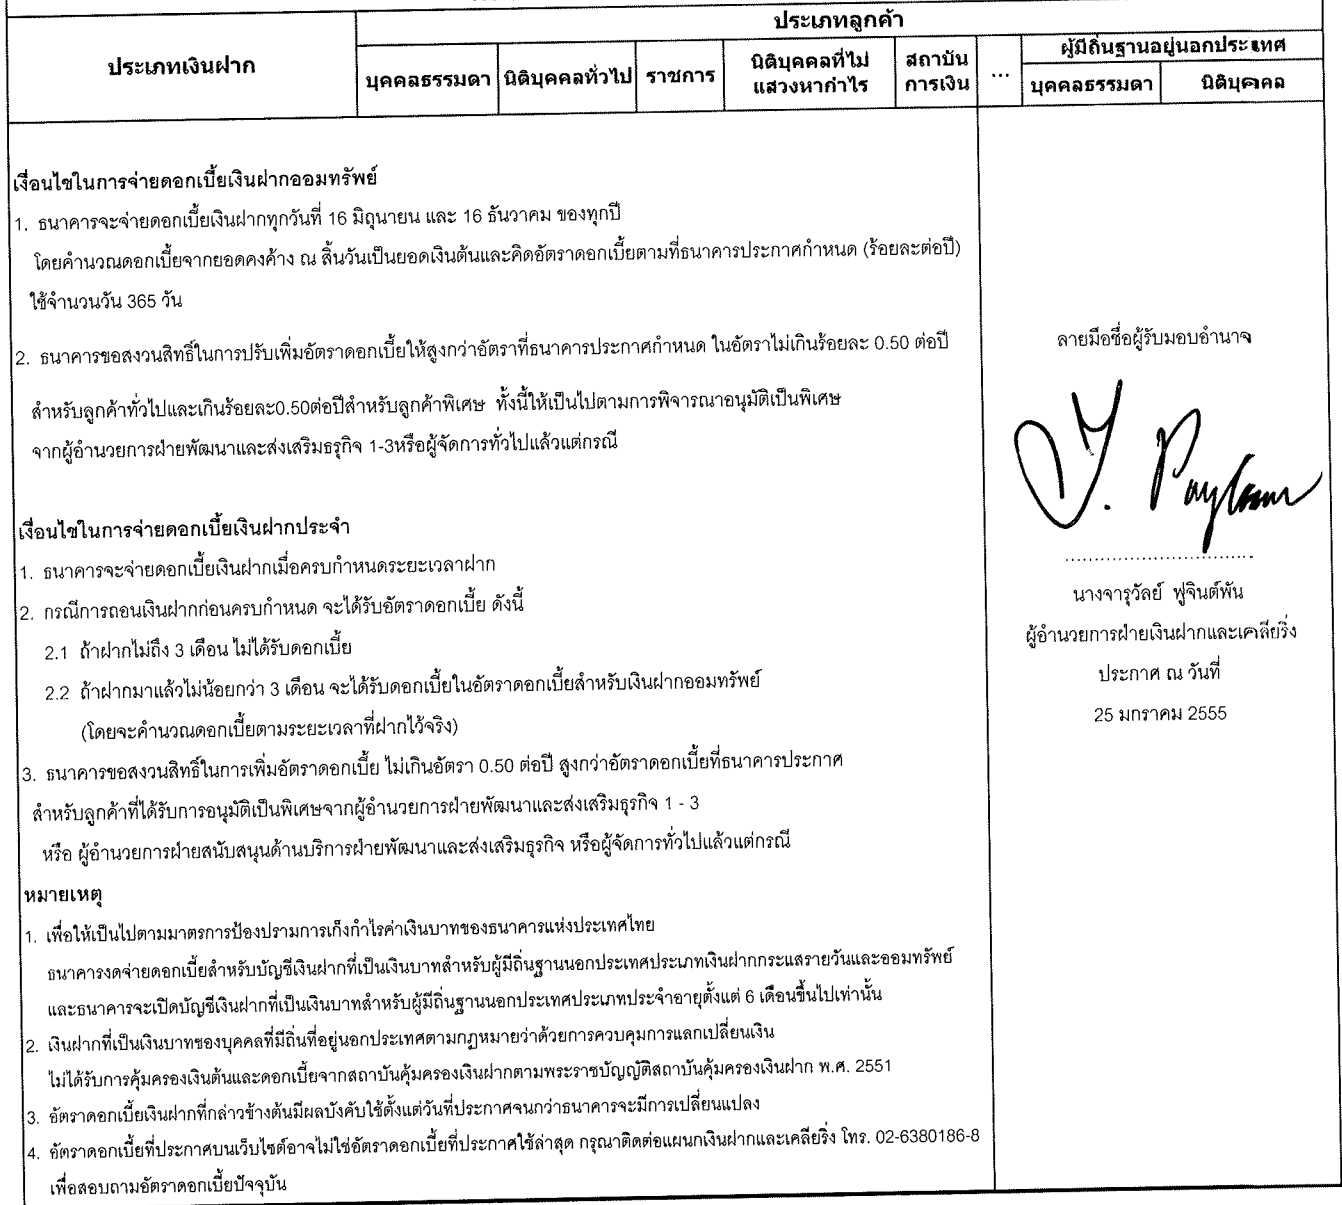 ประเภทลูกค้า
ประเภทเงินฝาก
บุคคลธรรมดา
นิติบุคคลทั่วไป
ราชการ
นิติบุคคลที่ไม่
แสวงหากำไร
สถาบัน
การเงิน
...
ผู้มีถิ่นฐานอยู่นอกประเทศ
บุคคลธรรมดา
นิติบุคคล
เงื่อนไขในการจ่ายดอกเบี้ยเงินฝากออมทรัพย์
1. ธนาคารจะจ่ายดอกเบี้ยเงินฝากทุกวันที่ 16 มิถุนายน และ 16 ธันวาคม ของทุกปี
โดยคำนวณดอกเบี้ยจากยอดคงค้าง ณ สิ้นวันเป็นยอดเงินต้นและคิดอัตราดอกเบี้ยตามที่ธนาคารประกาศกำหนด (ร้อยละต่อปี)
ใช้จำนวนวัน 365 วัน
2. ธนาคารขอสงวนสิทธิ์ในการปรับเพิ่มอัตราดอกเบี้ยให้สูงกว่าอัตราที่ธนาคารประกาศกำหนด ในอัตราไม่เกินร้อยละ 0.50 ต่อปี
สำหรับลูกค้าทั่วไปและเกินร้อยละ0.50ต่อปีสำหรับลูกค้าพิเศษ ทั้งนี้ให้เป็นไปตามการพิจารณาอนุมัติเป็นพิเศษ
จากผู้อำนวยการฝ่ายพัฒนาและส่งเสริมธุรกิจ 1-3หรือผู้จัดการทั่วไปแล้วแต่กรณี
เงื่อนไขในการจ่ายดอกเบี้ยเงินฝากประจำ
1. ธนาคารจะจ่ายดอกเบี้ยเงินฝากเมื่อครบกำหนดระยะเวลาฝาก
2. กรณีการถอนเงินฝากก่อนครบกำหนด จะได้รับอัตราดอกเบี้ย ดังนี้
2.1 ถ้าฝากไม่ถึง 3 เดือน ไม่ได้รับดอกเบี้ย
2.2 ถ้าฝากมาแล้วไม่น้อยกว่า 3 เดือน จะได้รับดอกเบี้ยในอัตราดอกเบี้ยสำหรับเงินฝากออมทรัพย์
(โดยจะคำนวณดอกเบี้ยตามระยะเวลาที่ฝากไว้จริง)
3. ธนาคารขอสงวนสิทธิ์ในการเพิ่มอัตราดอกเบี้ย ไม่เกินอัตรา 0.50 ต่อปี สูงกว่าอัตราดอกเบี้ยที่ธนาคารประกาศ
สำหรับลูกค้าที่ได้รับการอนุมัติเป็นพิเศษจากผู้อำนวยการฝ่ายพัฒนาและส่งเสริมธุรกิจ 1 - 3
หรือ ผู้อำนวยการฝ่ายสนับสนุนด้านบริการฝ่ายพัฒนาและส่งเสริมธุรกิจ หรือผู้จัดการทั่วไปแล้วแต่กรณี
หมายเหตุ
1. เพื่อให้เป็นไปตามมาตรการป้องปรามการเก็งกำไรค่าเงินบาทของธนาคารแห่งประเทศไทย
ธนาคารงดจ่ายดอกเบี้ยสำหรับบัญชีเงินฝากที่เป็นเงินบาทสำหรับผู้มีถิ่นฐานนอกประเทศประเภทเงินฝากกระแสรายวันและออมทรัพย์
และธนาคารจะเปิดบัญชีเงินฝากที่เป็นเงินบาทสำหรับผู้มีถิ่นฐานนอกประเทศประเภทประจำอายุตั้งแต่ 6 เดือนขึ้นไปเท่านั้น
2. เงินฝากที่เป็นเงินบาทของบุคคลที่มีถิ่นที่อยู่นอกประเทศตามกฎหมายว่าด้วยการควบคุมการแลกเปลี่ยนเงิน
ไม่ได้รับการคุ้มครองเงินต้นและดอกเบี้ยจากสถาบันคุ้มครองเงินฝากตามพระราชบัญญัติสถาบันคุ้มครองเงินฝาก พ.ศ. 2551
3. อัตราดอกเบี้ยเงินฝากที่กล่าวข้างต้นมีผลบังคับใช้ตั้งแต่วันที่ประกาศจนกว่าธนาคารจะมีการเปลี่ยนแปลง
4. อัตราดอกเบี้ยที่ประกาศบนเว็บไซต์อาจไม่ใช่อัตราดอกเบี้ยที่ประกาศใช้ล่าสุด กรุณาติดต่อแผนกเงินฝากและเคลียริ่ง โทร. 02-6380186-8
เพื่อสอบถามอัตราดอกเบี้ยปัจจุบัน
ลายมือชื่อผู้รับมอบอำนาจ
นางจารุวัลย์ ฟูจินต์พัน
ผู้อำนวยการฝ่ายเงินฝากและเคลียริ่ง
ประกาศ ณ วันที่
25 มกราคม 2555